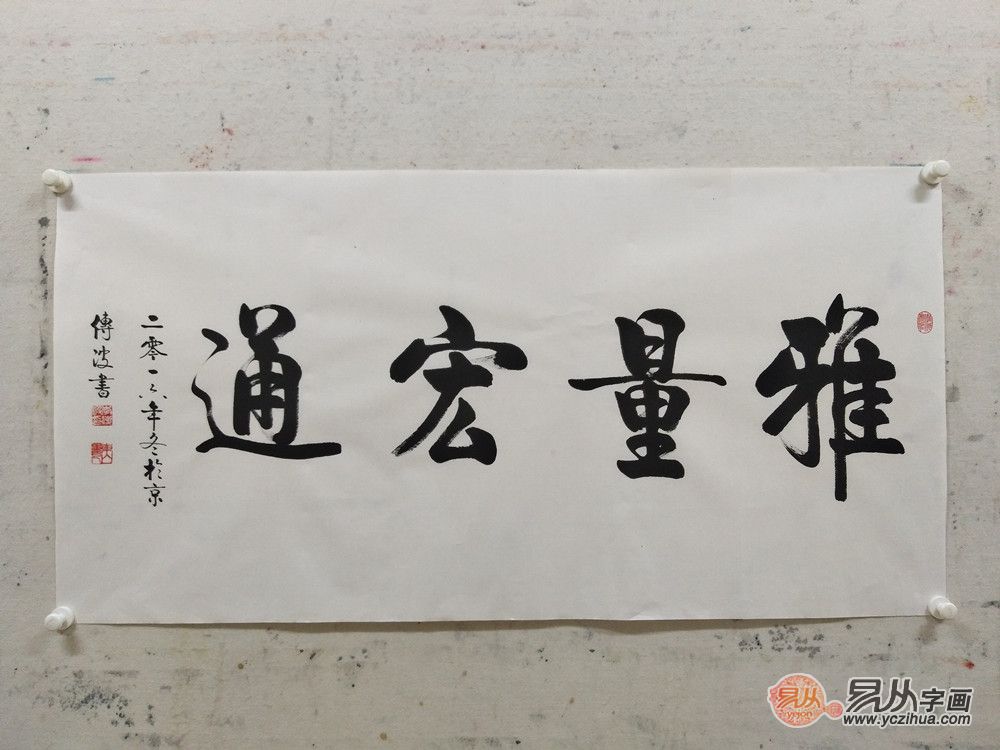 雅量宏通
二零一六年冬於京
傳波書
易从字画
www.yczihua.com